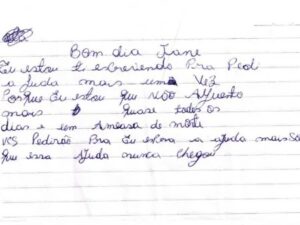 Bom dia Jane
Eu estou ti escrevendo Pra Pedi
a Ajuda mais uma Vez
Porque Eu estou que NÃO Aguento
mais Quase todos os
dias e sem Ameasa de morte
vcs Pedirão Pra Eu espera a ajuda mais
que essa Ajuda nunca chegou